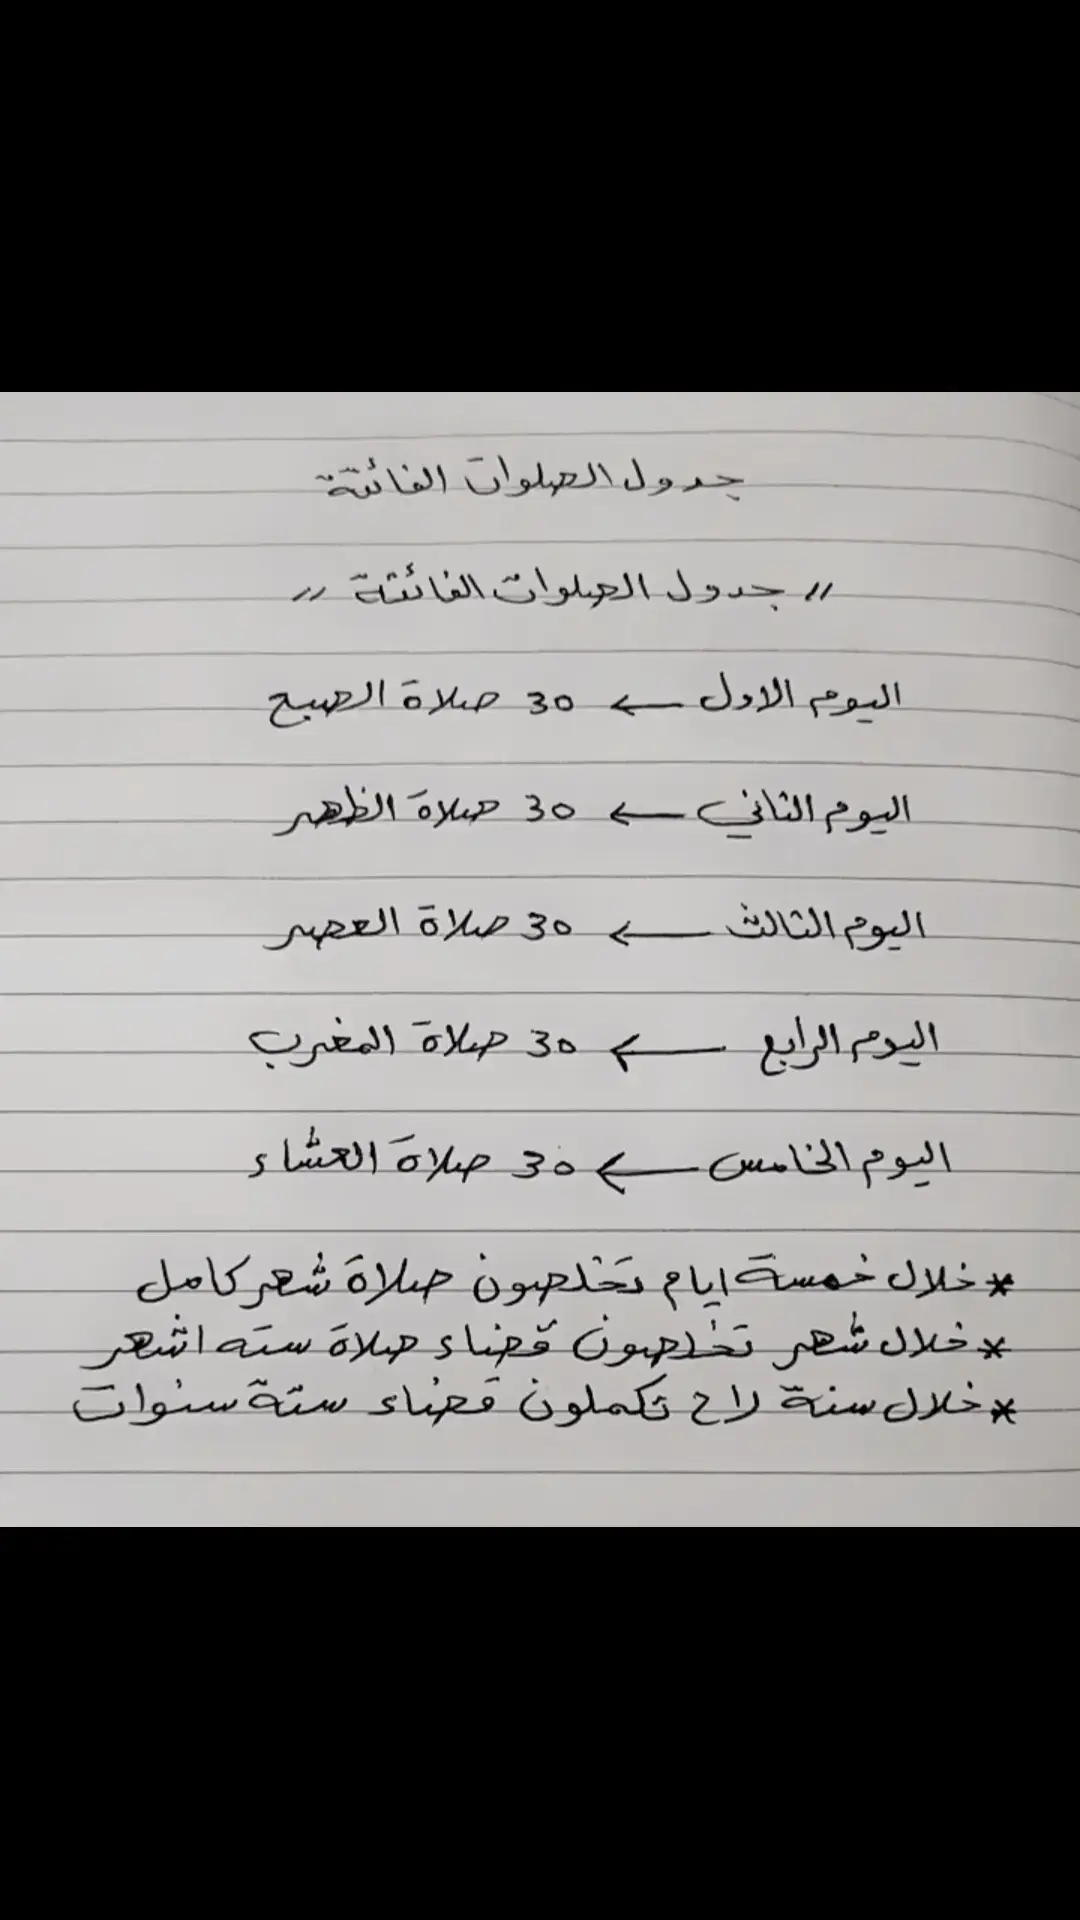 جدول الصلوات الفائتة
// جدول الصلوات الفائتة //
اليوم الاول ← 30 صلاة الصبح
اليوم الثاني ← 30 صلاة الظهر
اليوم الثالث ← 30 صلاة العصر
اليوم الرابع ← 30 صلاة المغرب
اليوم الخامس ← 30 صلاة العشاء
* خلال خمسة ايام تخلصون صلاة شهر كامل
* خلال شهر تخلصون قضاء صلاة سته اشهر
* خلال سنة راح تكملون قضاء ستة سنوات